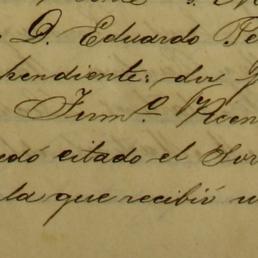 D. Eduardo Pe
pendiente; der
Firmº Vicen
edó citado el Sor
la que recibió u